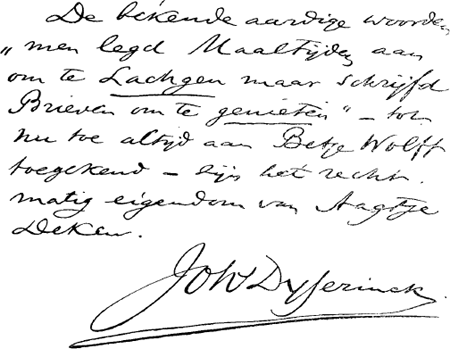 De bekende aardige woorden
„men legd Maaltijden aan
om te Lachgen maar schrijfd
Brieven om te genieten" – tot
nu toe altijd aan Betje Wolff
toegekend – zijn het recht-
matig eigendom van Aagtje
Deken.
Joh Dyserinck.